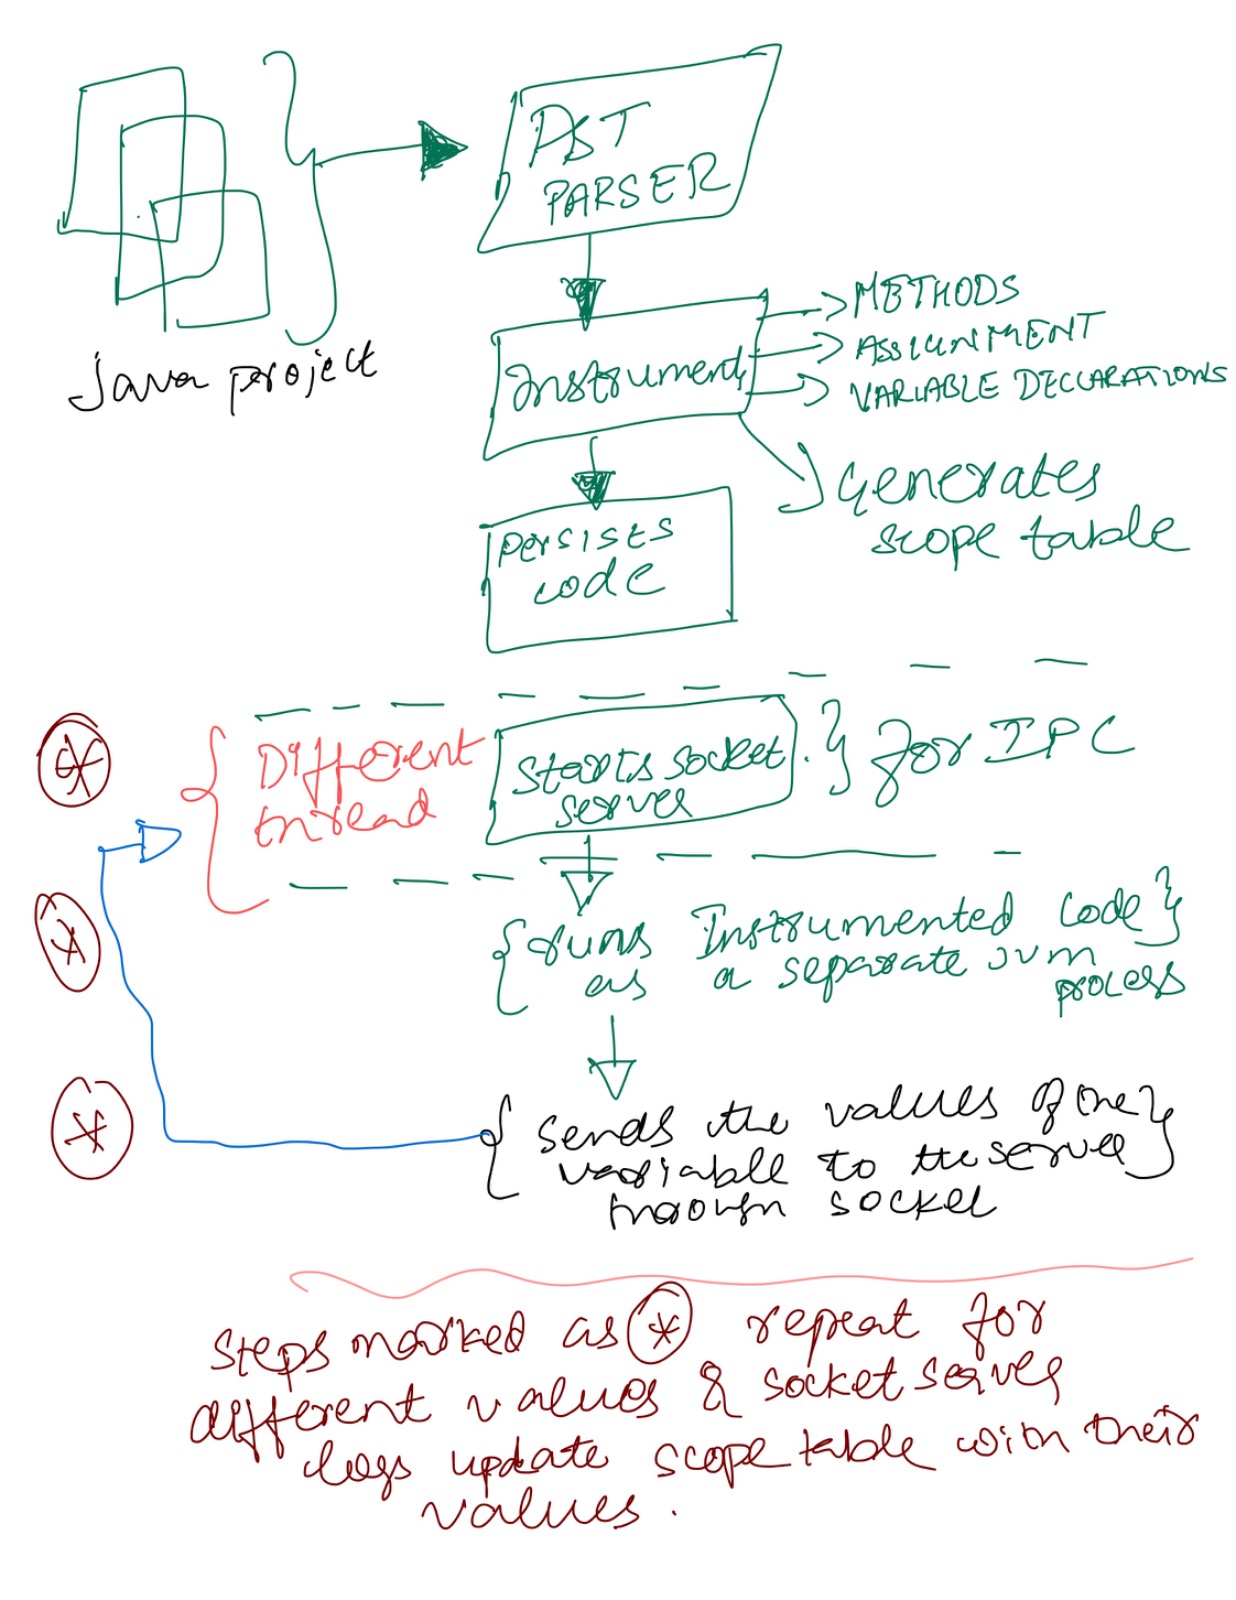 AST
PARSER
Java project
Instrument
METHODS
ASSIGNMENT
VARIABLE DECLARATIONS
Generates
scope table
persists
code
Different
thread
starts socket
server
for IPC
runs Instrumented code
as a separate JVM
process
sends the values of the
variable to the server
through socket
steps marked as * repeat for
different values & socket server
logs update scope table with their
values.